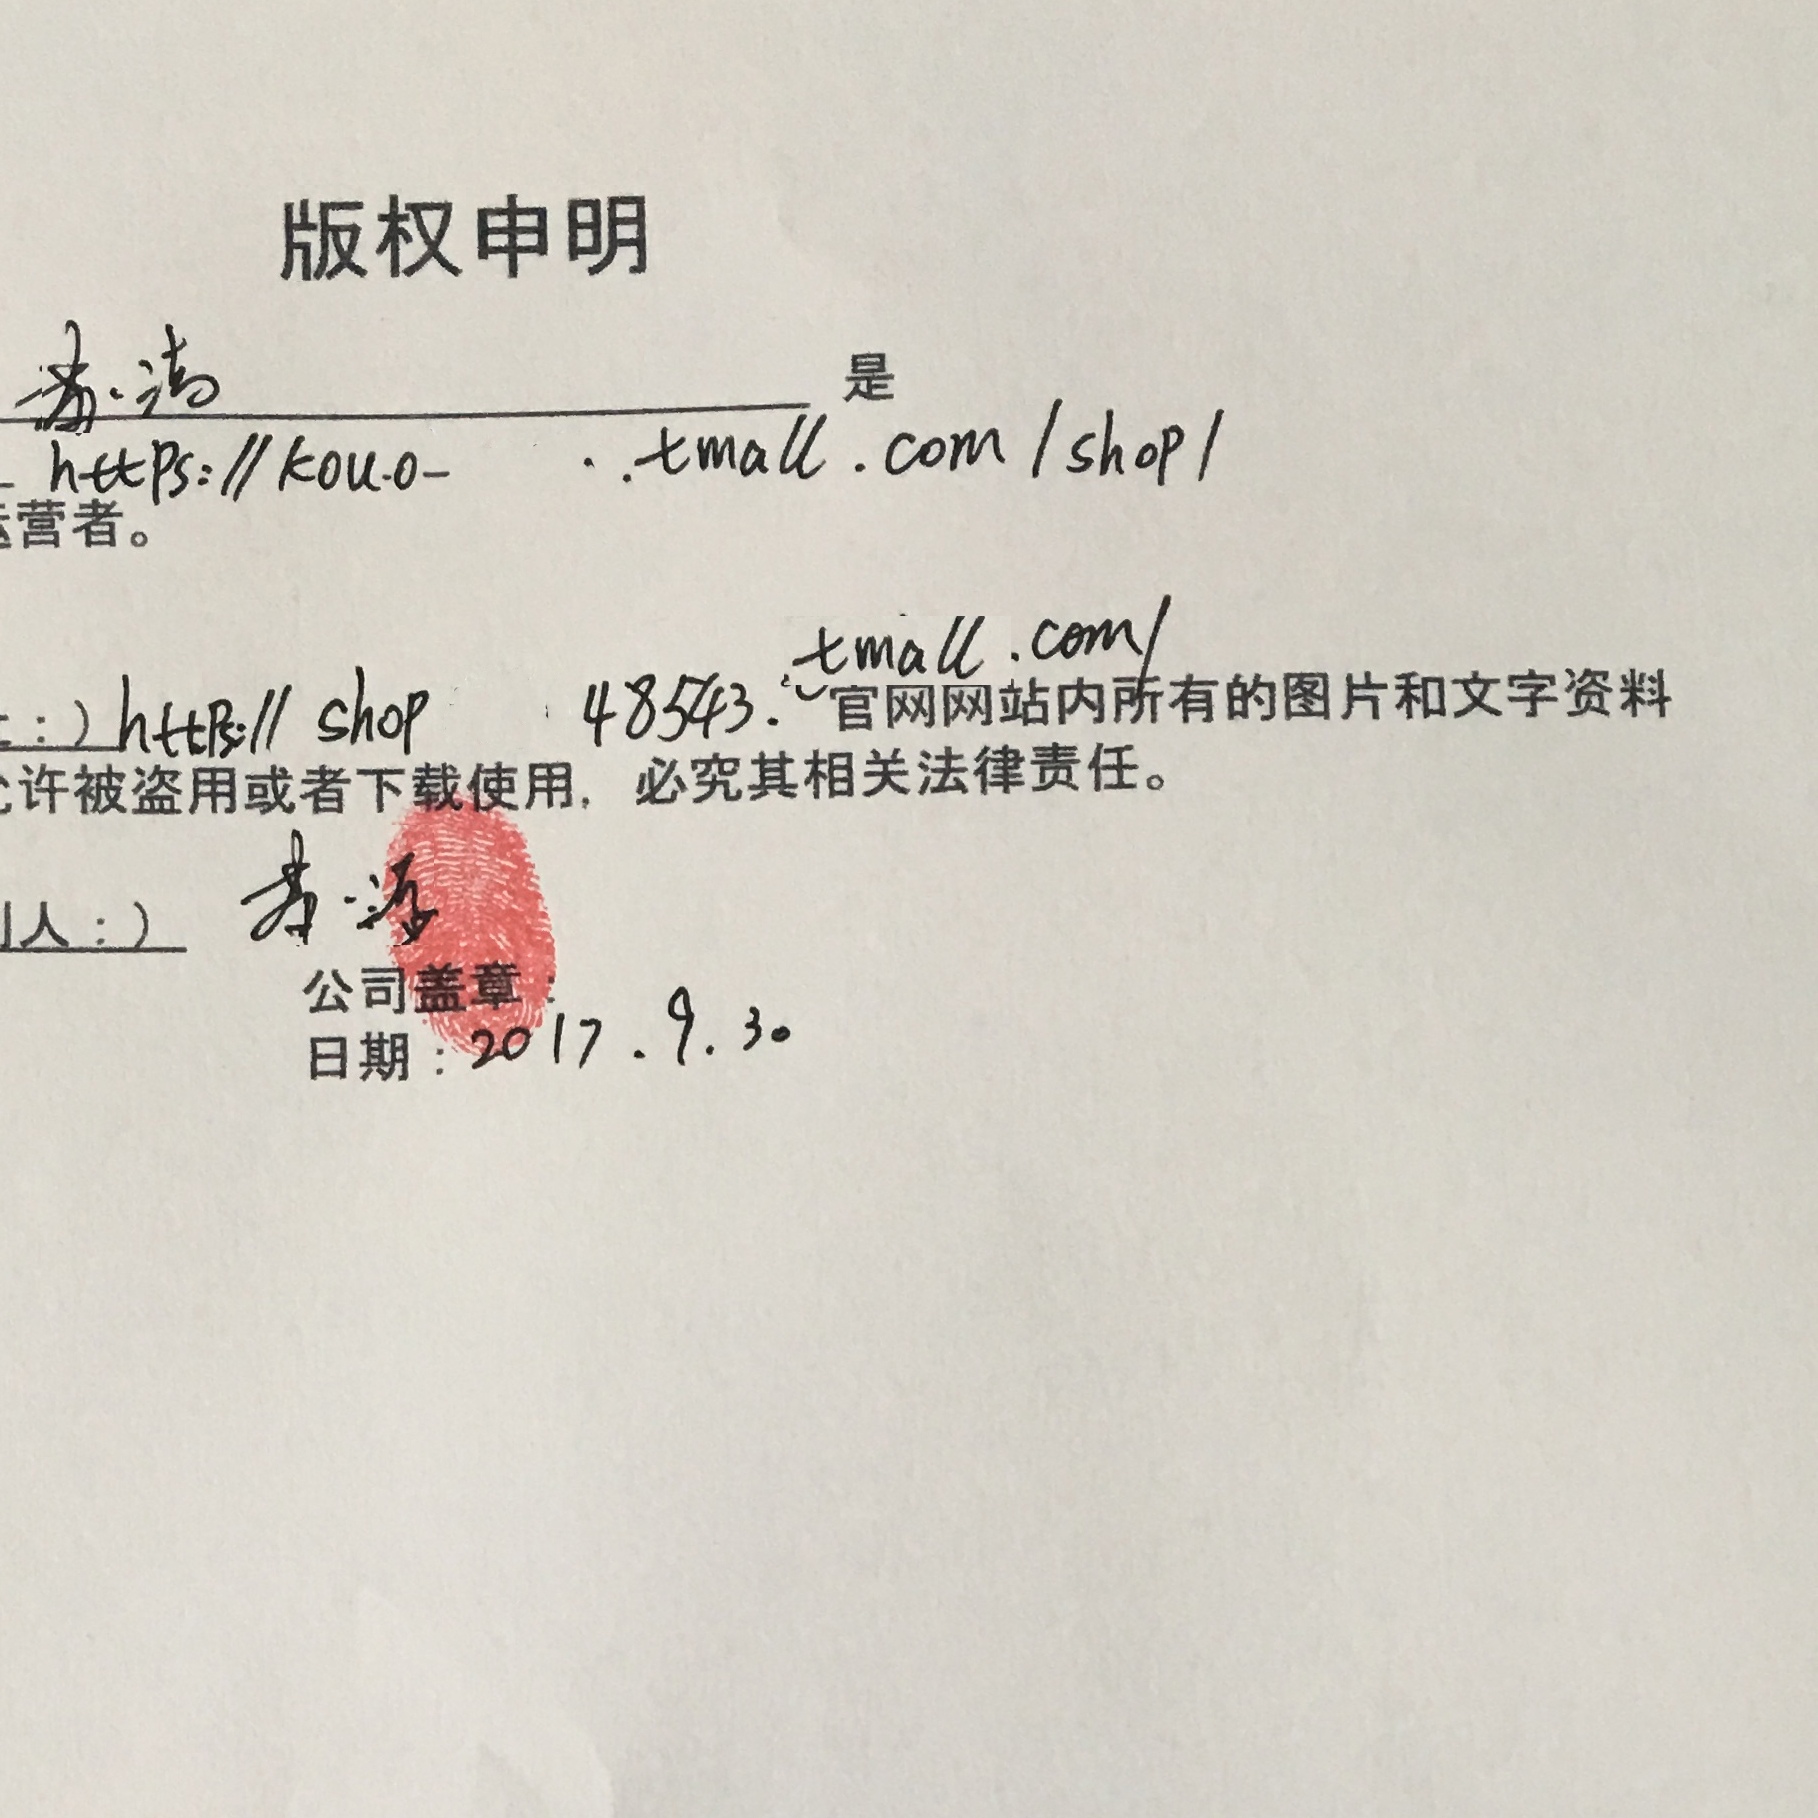 版权申明
是
https://kou.o- .tmall.com/shop/
运营者。
tmall.com/
:）https://shop 48543. 官网网站内所有的图片和文字资料
允许被盗用或者下载使用，必究其相关法律责任。
人：）
公司盖章：
日期：2017.9.30